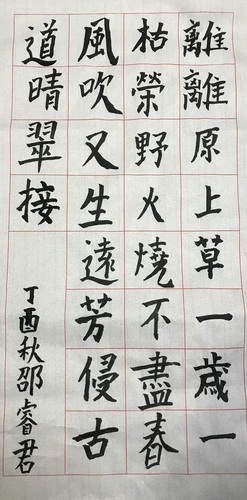 離離原上草一歲一
枯榮野火燒不盡春
風吹又生遠芳侵古
道晴翠接
丁酉秋邵睿君